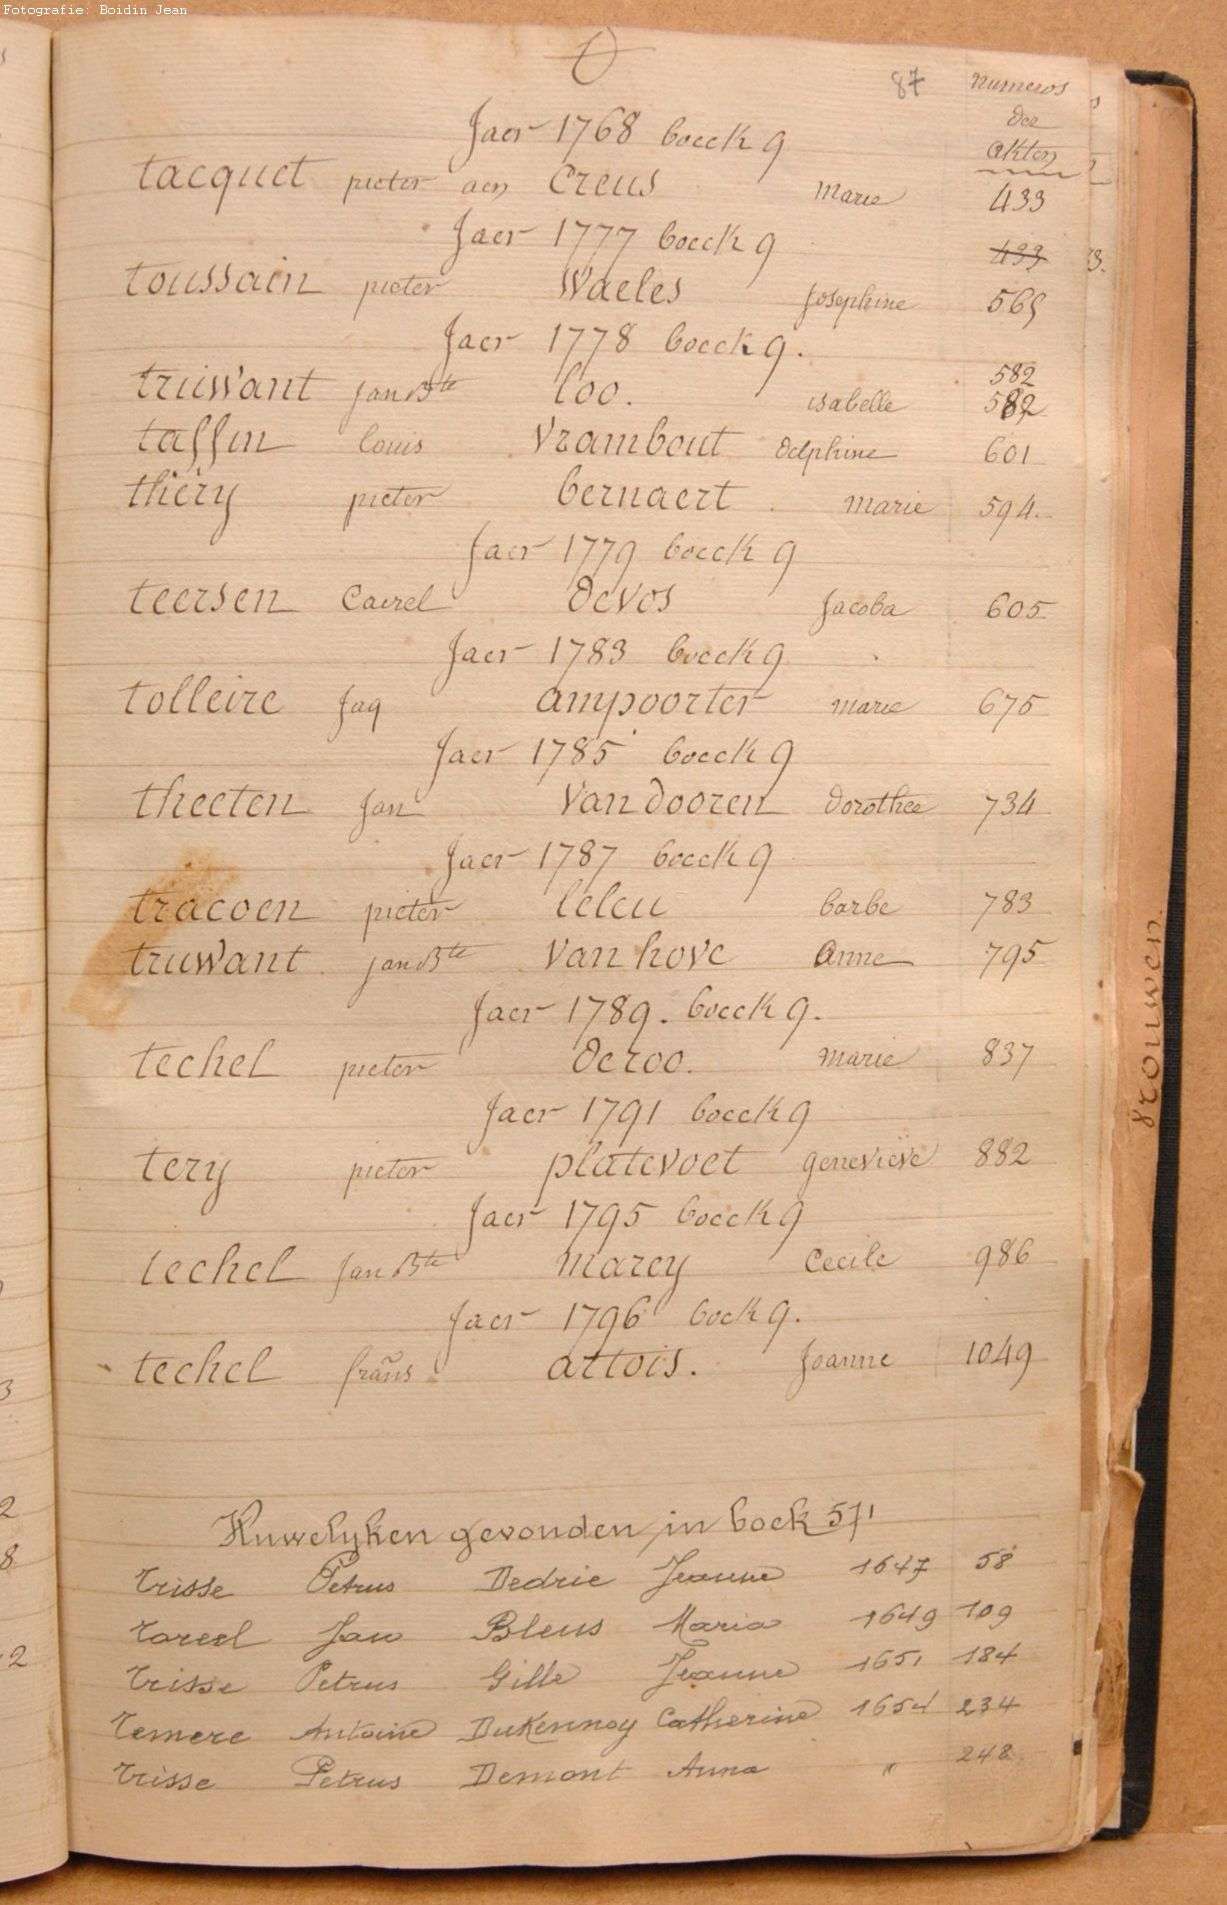 Fotografie: Boidin Jean
T
87 numeros
der
akten
Jaer 1768 boeck 9
tacquet pieter aen Creus Marie 433
Jaer 1777 boeck 9 433
toussain pieter Waeles Josephine 565
Jaer 1778 boeck 9.
582
truwant jan Bte loo. isabelle 582
taffin louis Vrambout delphine 601
thiery pieter bernaert marie 594.
Jaer 1779 boeck 9
teersen Caerel devos Jacoba 605
Jaer 1783 boeck 9
tolleire Jaq ampoorter marie 675
Jaer 1785 boeck 9
theeten Jan Van dooren dorothee 734
Jaer 1787 boeck 9
tracoen pieter leleu barbe 783
truwant jan Bte Van hove Anne 795
Jaer 1789. boeck 9.
techel pieter deroo. marie 837
Jaer 1791 boeck 9
tery pieter platevoet genevieve 882
Jaer 1795 boeck 9
techel Jan Bte marey Cecile 986
Jaer 1796 boek 9.
techel frans artois. Joanne 1049
Huwelyken gevonden in boek 571
Trisse Petrus Dedrie Jeanne 1647 58
Tareel Jan Bleus Maria 1649 109
Trisse Petrus Gille Jeanne 1651 184
Temere Antoine Dukennoy Catherine 1654 234
Trisse Petrus Demont Anna " 248
vrouwen.